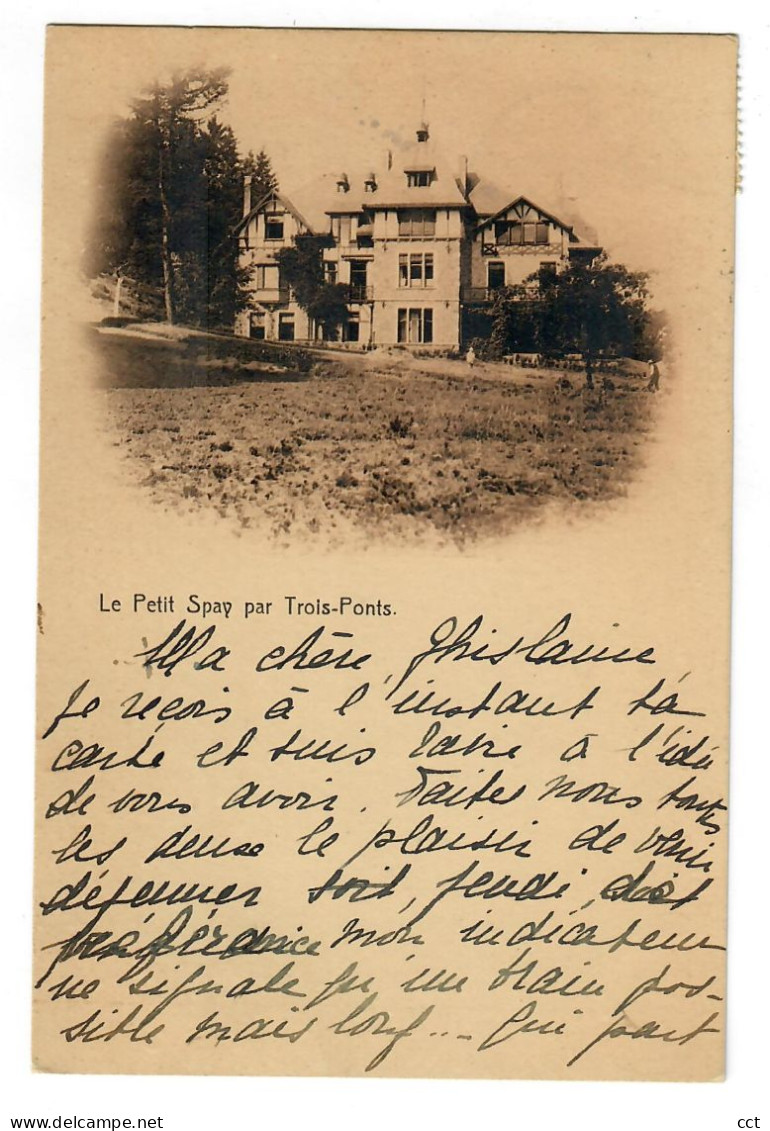 Le Petit Spay par Trois-Ponts.
Ma chère Ghislaine
Je reçois à l'instant ta
carte et suis ravie à l'idée
de vous avoir. Faites nous toutes
les deux le plaisir de venir
déjeuner soit, jeudi, soit
préférence mon indicateur
ne signale qu'un train pos-
sible mais long... Qui part
Delcampe.net
cct